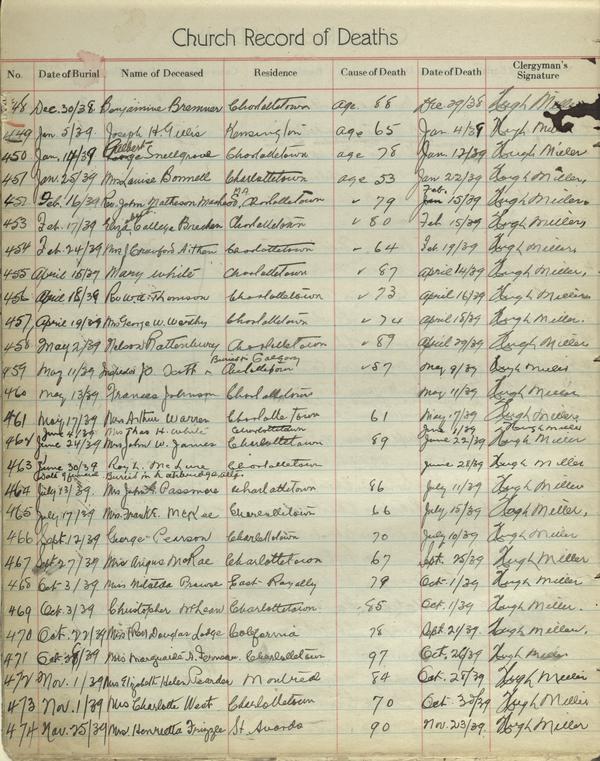 Church Record of Deaths
No. Date of Burial Name of Deceased Residence Cause of Death Date of Death Clergyman's Signature
48 Dec. 30/38 Benjamine Bremner Charlottetown age 88 Dec 29/38 Hugh Miller
449 Jan 5/39 Joseph H Gillis Kensington age 65 Jan 4/39 Hugh Miller
450 Jan 14/39 George Snellgrove Charlottetown age 78 Jan. 12/39 Hugh Miller
451 Jan. 25/39 Mrs Louise Bonnell Charlottetown age 53 Jan 22/39 Hugh Miller,
452 Feb. 16/39 Rev. John Matheson Charlottetown " 79 Feb. 15/39 Hugh Miller
453 Feb. 17/39 Charlottetown " 80 Feb 15/39 Hugh Miller
454 Feb. 24/39 Mrs J Crawford Aitken Charlottetown " 64 Feb. 19/39 Hugh Miller
455 April 15/39 Mary White Charlottetown " 87 April 14/39 Hugh Miller,
456 April 18/39 Thomson Charlottetown " 73 April 16/39 Hugh Miller
457 April 19/39 Mrs George W. Worthy Charlottetown " 74 April 18/39 Hugh Miller.
458 May 2/39 Nelson Rattenbury Charlottetown " 89 April 29/39 Hugh Miller
Buried in Calgary
459 May 11/39 Charlottetown " 57 May 8/39 Hugh Miller
460 May 13/39 Frances Johnson Charlottetown May 11/39 Hugh Miller
461 May 17/39 Mrs Arthur Warren Charlottetown 61 May 17/39 Hugh Miller
June 4/39 Mrs Thos H. White Charlottetown June 1/39 Hugh Miller
462 June 24/39 Mrs John W. James Charlottetown 89 June 22/39 Hugh Miller
463 June 30/39 Roy L. McLure Charlottetown June 28/39 Hugh Miller
Date of funeral Buried in
464 July 13/39. Mrs John A Passmore Charlottetown 86 July 11/39 Hugh Miller
465 July 17/39 Mrs. Frank E. McRae Charlottetown 66 July 15/39 Hugh Miller,
466 Sept. 12/39 George Pearson Charlottetown 70 July 10/39 Hugh Miller
467 Sept 27/39 Mrs Angus McRae Charlottetown 67 Sept. 25/39 Hugh Miller
468 Oct 3/39 Mrs Matilda Bruise East Royalty 79 Oct. 1/39 Hugh Miller
469 Oct. 3/39 Christopher McLean Charlottetown. 85 Oct. 1/39 Hugh Miller.
470 Oct. 22/39 Mrs Douglas Lodge California 78 Sept. 21/39 Hugh Miller,
471 Oct. 28/39 Mrs Marguerite A. Charlottetown 97 Oct. 26/39 Hugh Miller
472 Nov. 1/39 Mrs Elizabeth Helen Montreal 84 Oct. 25/39 Hugh Miller
473 Nov. 1/39 Mrs Charlotte West Charlottetown 70 Oct. 30/39 Hugh Miller
474 Nov. 25/39 Mrs. Henrietta Frizzle St Avards 90 Nov. 23/39. Hugh Miller